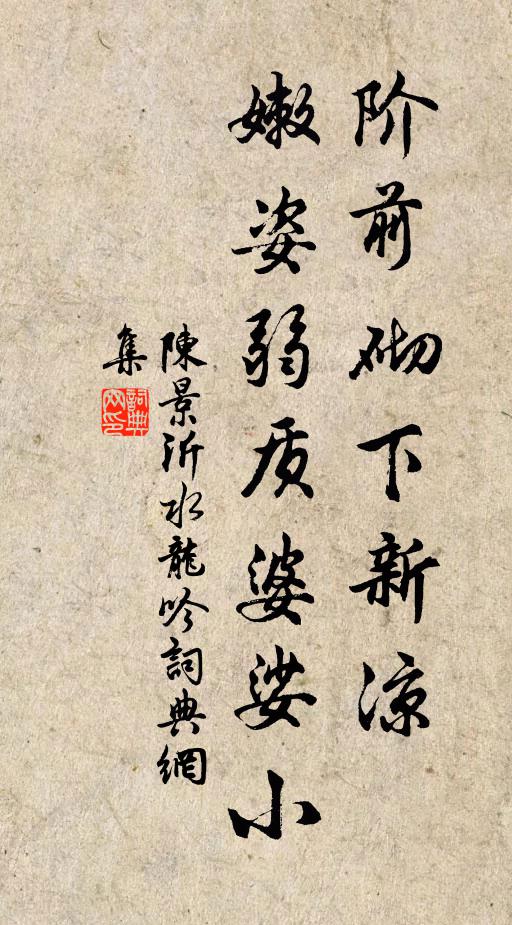 阶前砌下新凉
嫩姿弱质婆娑小
陳景沂水龍吟詞典網
集
詞典网印